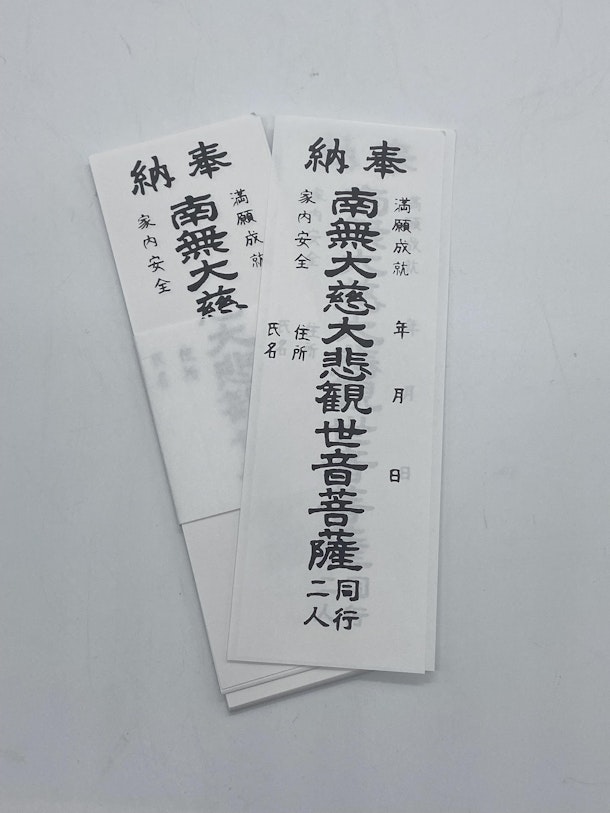 奉納
満願成就
年 月 日
南無大慈大悲観世音菩薩
同行
二人
家内安全
住所
氏名
奉納
満願成就
南無大慈
家内安全